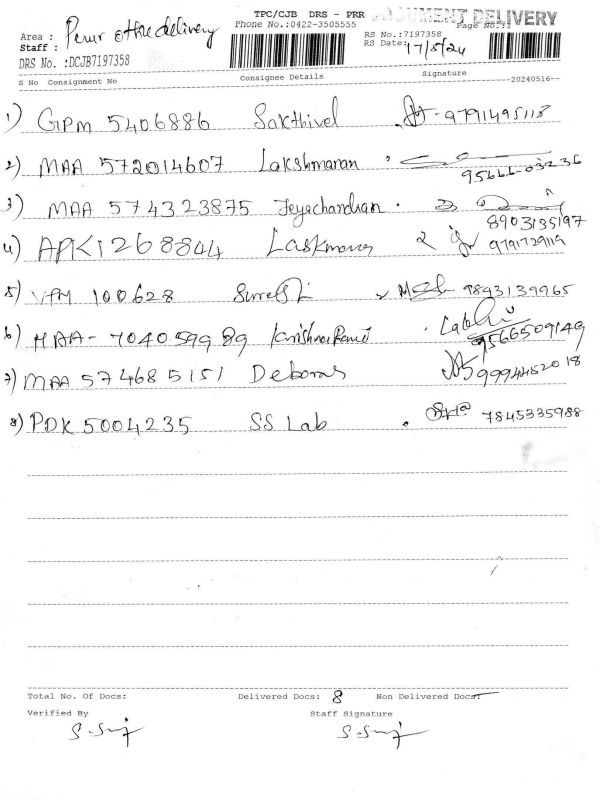 TPC/CJB DRS - PRR DOCUMENT DELIVERY
Phone No.:0422-3505555 Page No.:1
Area : office delivery
Staff :
RS No.:7197358
RS Date: 17/5/24
DRS No. :DCJB7197358
S No Consignment No Consignee Details Signature --20240516--
1) GPM 5406886 Sakthivel 9791495118
2) MAA 572014607 Lakshmanan 95666-03236
3) MAA 574323875 Jeyachandran 8903135197
4) APK1268844 9791729119
5) VPM 100628 9843139965
6) MAA - 704059989 9566509149
7) MAA 574685151 Deborah 9994452018
8) PDK 5004235 SS Lab 7845335988
Total No. Of Docs: Delivered Docs: 8 Non Delivered Docs:
Verified By Staff Signature